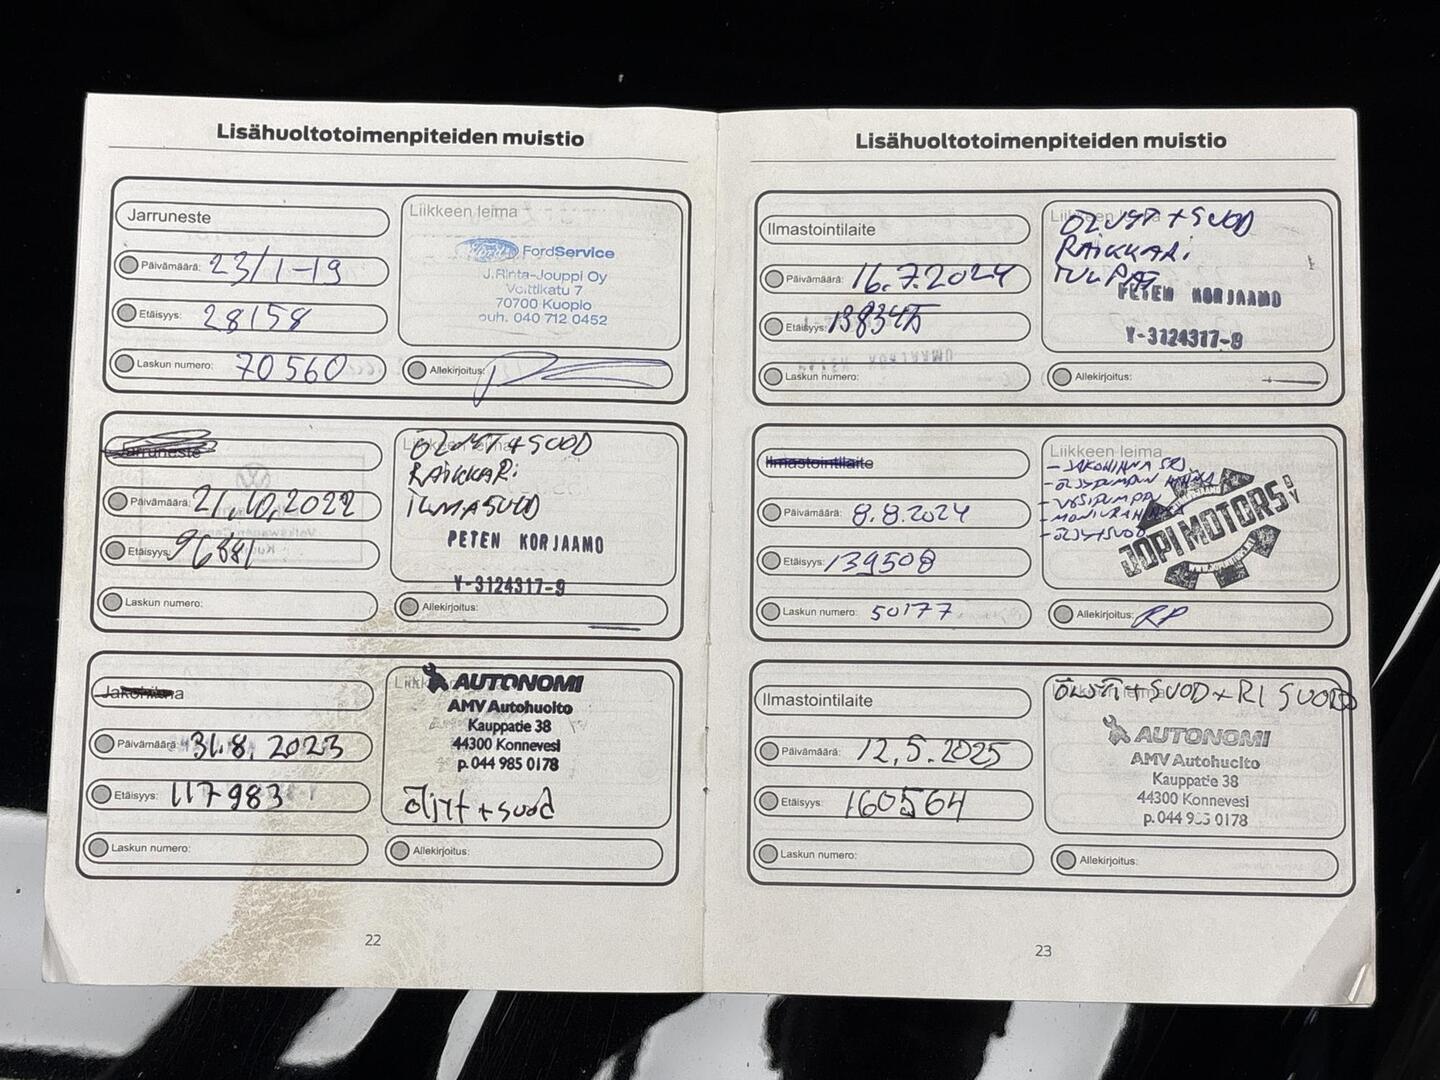 Lisähuoltotoimenpiteiden muistio
Jarruneste
Päivämäärä: 23/1-19
Etäisyys: 28158
Laskun numero: 70560
Liikkeen leima
Ford FordService
J.Rinta-Jouppi Oy
Volttikatu 7
70700 Kuopio
puh. 040 712 0452
Allekirjoitus:
Jarruneste
Päivämäärä: 21.10.2022
Etäisyys: 96881
Laskun numero:
ÖLJYT + SUOD
RAIKKARI
ILMASUOD
PETEN KORJAAMO
Y-3124317-9
Allekirjoitus:
Jakohihna
Päivämäärä: 31.8. 2023
Etäisyys: 117983
Laskun numero:
AUTONOMI
AMV Autohuolto
Kauppatie 38
44300 Konnevesi
p. 044 985 0178
öljyt + suod
Allekirjoitus:
22
Lisähuoltotoimenpiteiden muistio
Ilmastointilaite
Päivämäärä: 16.7.2024
Etäisyys:
Laskun numero:
Liikkeen leima
ÖLJYT + SUOD
RAIKKARI
TULPAT
PETEN KORJAAMO
Y-3124317-9
Allekirjoitus:
Ilmastointilaite
Päivämäärä: 8.8.2024
Etäisyys: 139508
Laskun numero: 50177
Liikkeen leima
- JAKOHIHNA SRJ
- ÖLJYPUMPUN HIHNA
- VESIPUMPPU
- MONIURAHIHNA
- ÖLJY+SUOD
JOPI MOTORS OY
Allekirjoitus: RP
Ilmastointilaite
Päivämäärä: 12.5.2025
Etäisyys: 160564
Laskun numero:
ÖLJYT + SUOD + RI SUOD
AUTONOMI
AMV Autohuolto
Kauppatie 38
44300 Konnevesi
p. 044 985 0178
Allekirjoitus:
23